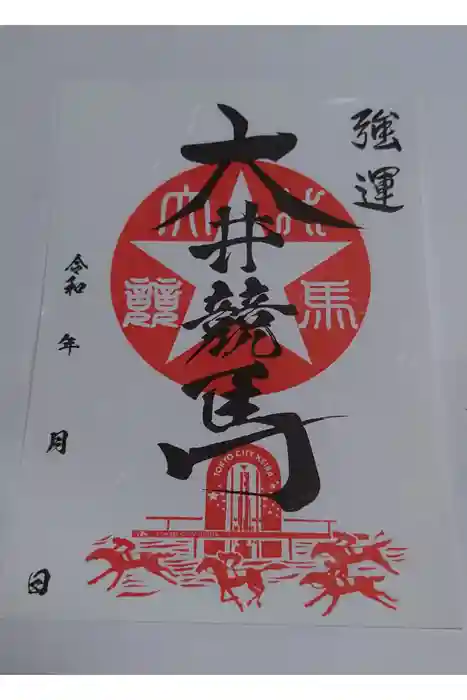 強運
大井競馬
大井
競馬
TOKYO CITY KEIBA
令和 年 月 日